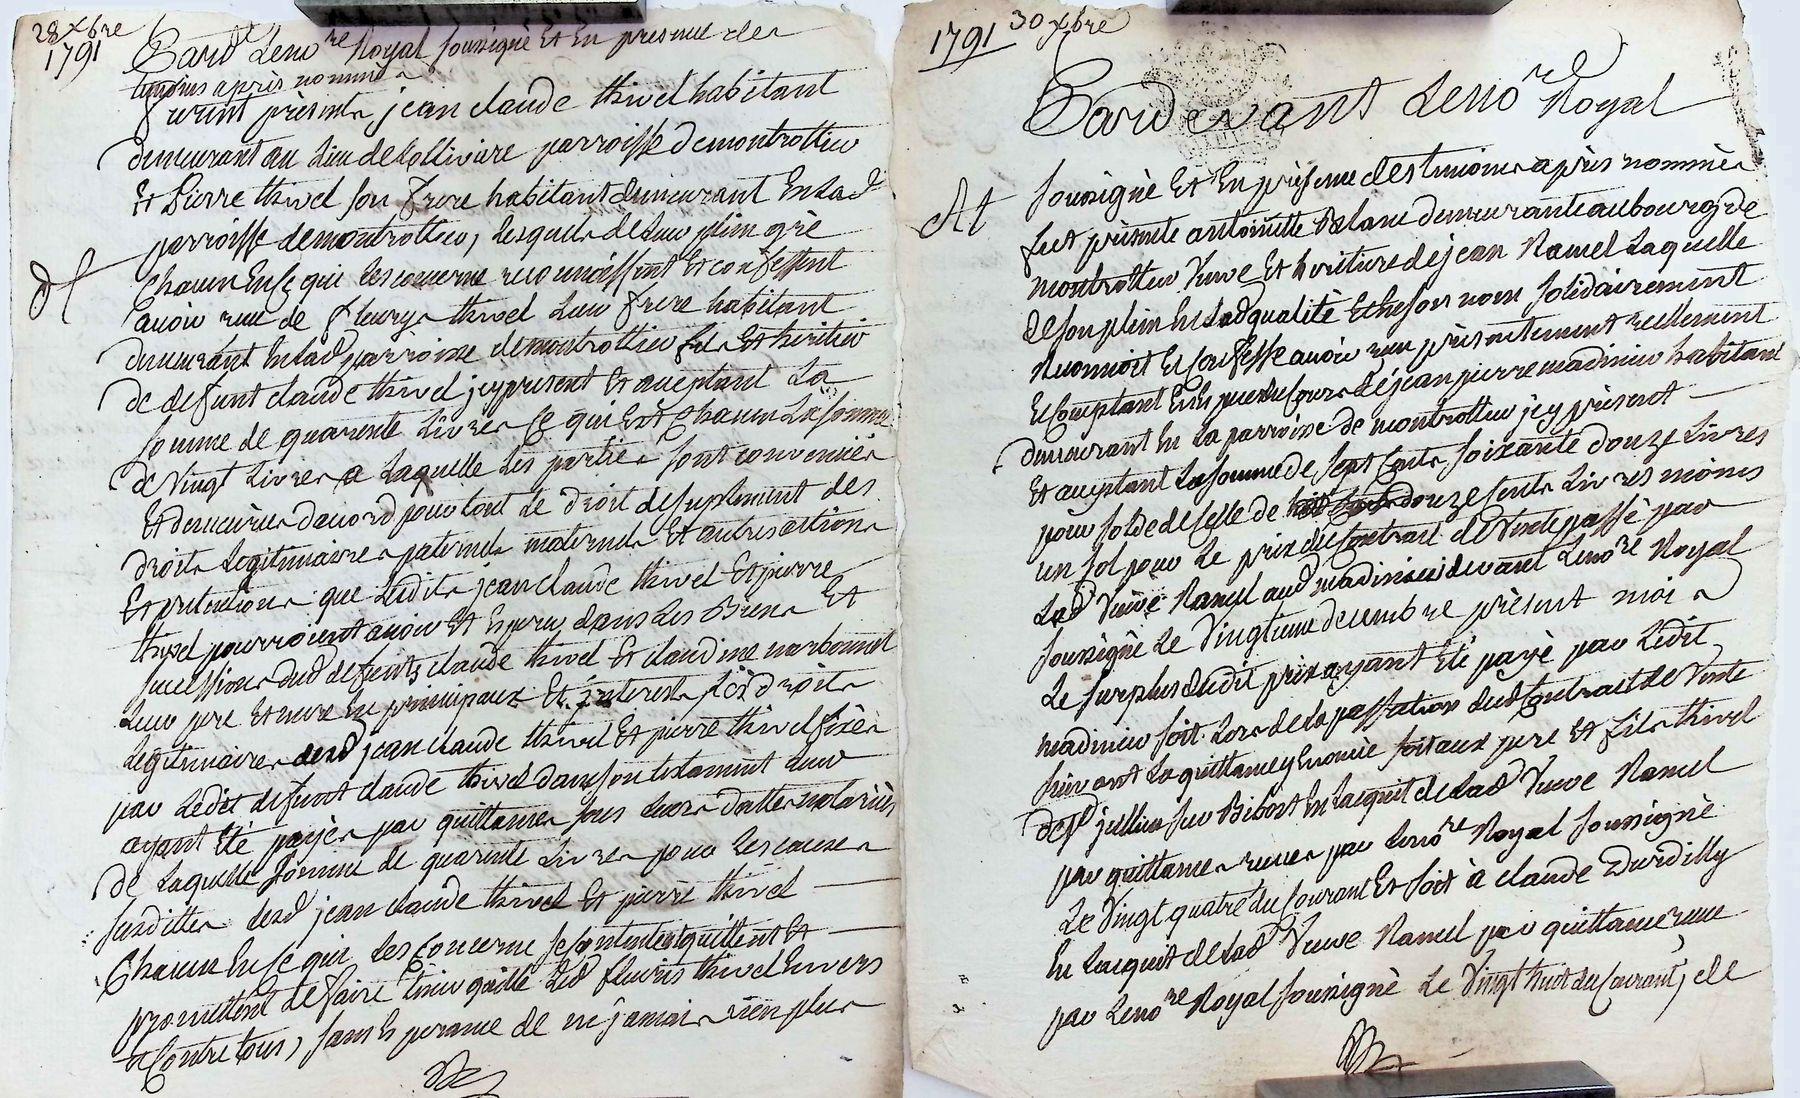 28 xbre
1791
Pard.t Le no.re Royal soussigné Et En presence des
temoins après nommés
furent présents jean claude thivel habitant
demeurant au Lieu de Lollivière parroisse de montrottier
Et Pierre thivel son frere habitant demeurant En Lad.e
parroisse de montrottier, Lesquels de Leur plein gré
chacun En ce qui Les concerne reconnoissent Et confessent
avoir reçu de fleury thivel Leur frere habitant
demeurant En Lad. parroisse de montrottier fils Et héritier
de defunt claude thivel, icy present Et aceptant La
somme de quarente Livres ce qui Est chacun La somme
de vingt Livres a Laquelle Les parties sont convenües
Et demeurées d'acord pour tout Le droit de suplement des
droits Legitimaires paternels maternels Et autres actions
Et pretentions que Ledits jean claude thivel Et pierre
thivel pourroient avoir Et Esperer dans Les Biens Et
successions dud. defunts claude thivel Et claudine narbonnet
Leur pere Et mere En principaux Et interests, Les droits
Legitimaires desd. jean claude thivel Et pierre thivel fixés
par Ledit defunt claude thivel dans son testament Leur
ayant Eté payés par quittances sous Leurs dattes notariées
de Laquelle somme de quarente Livres pour Les causes
susdittes Lesd. jean claude thivel Et pierre thivel
chacun En ce qui Les concerne se contentent quittent Et
promettent de faire tenir quitte Led. fleuris thivel Envers
Et contre tous, sans Esperance de ne jamais rien plus
1791 30 xbre
Pardevant Le no.re Royal
soussigné Et En présence des temoins après nommés
fut présente antoinette Blanc demeurante au bourg de
montrottier Veuve Et heritiere de jean Ramel Laquelle
de son plein En Lad. qualité Et En son nom solidairement
Reconnoit Et confesse avoir reçu présentement réellement
Et comptant En Especes du cours de jean pierre madinier habitant
demeurant En La parroisse de montrottier icy présent
Et aceptant La somme de sept cents soixante douze Livres
pour solde de celle de douze cents Livres moins
un sol pour Le prix du contrat de Vente passé par
Lad. Veuve Ramel aud. madinier devant Le no.re Royal
soussigné Le Vingt une decembre présent mois
Le surplus dudit prix ayant Eté payé par Ledit
madinier soit Lors de La passation dud. contrat de Vente
suivant La quittance y Enoncée soit aux pere Et fils thivel
de jullien sur Bibost En L'acquit de Lad. Veuve Ramel
par quittance reçue par Le no.re Royal soussigné
Le Vingt quatre du courant Et soit à claude Durdilly
En L'acquit de Lad. Veuve Ramel par quittance reçue
par Le no.re Royal soussigné Le Vingt huit du courant, de